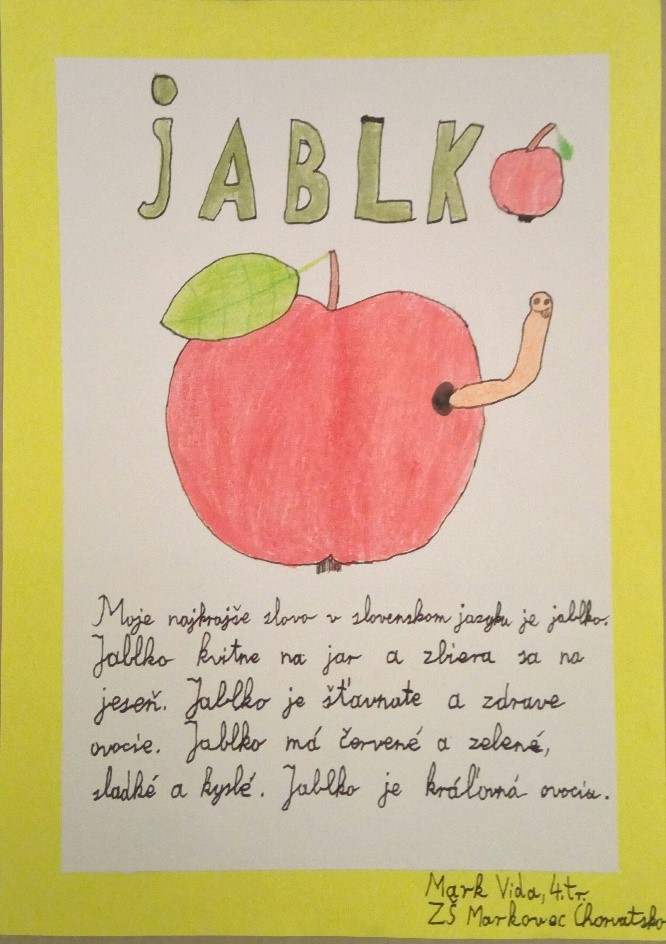 JABLKO
Moje najkrajše slovo v slovenskom jazyku je jablko.
Jablko kvitne na jar a zbiera sa na
jeseň. Jablko je šťavnate a zdrave
ovocie. Jablko má červené a zelené,
sladké a kyslé. Jablko je kráľovná ovocia.
Mark Vida, 4.tr.
ZŠ Markovec Chorvatsko